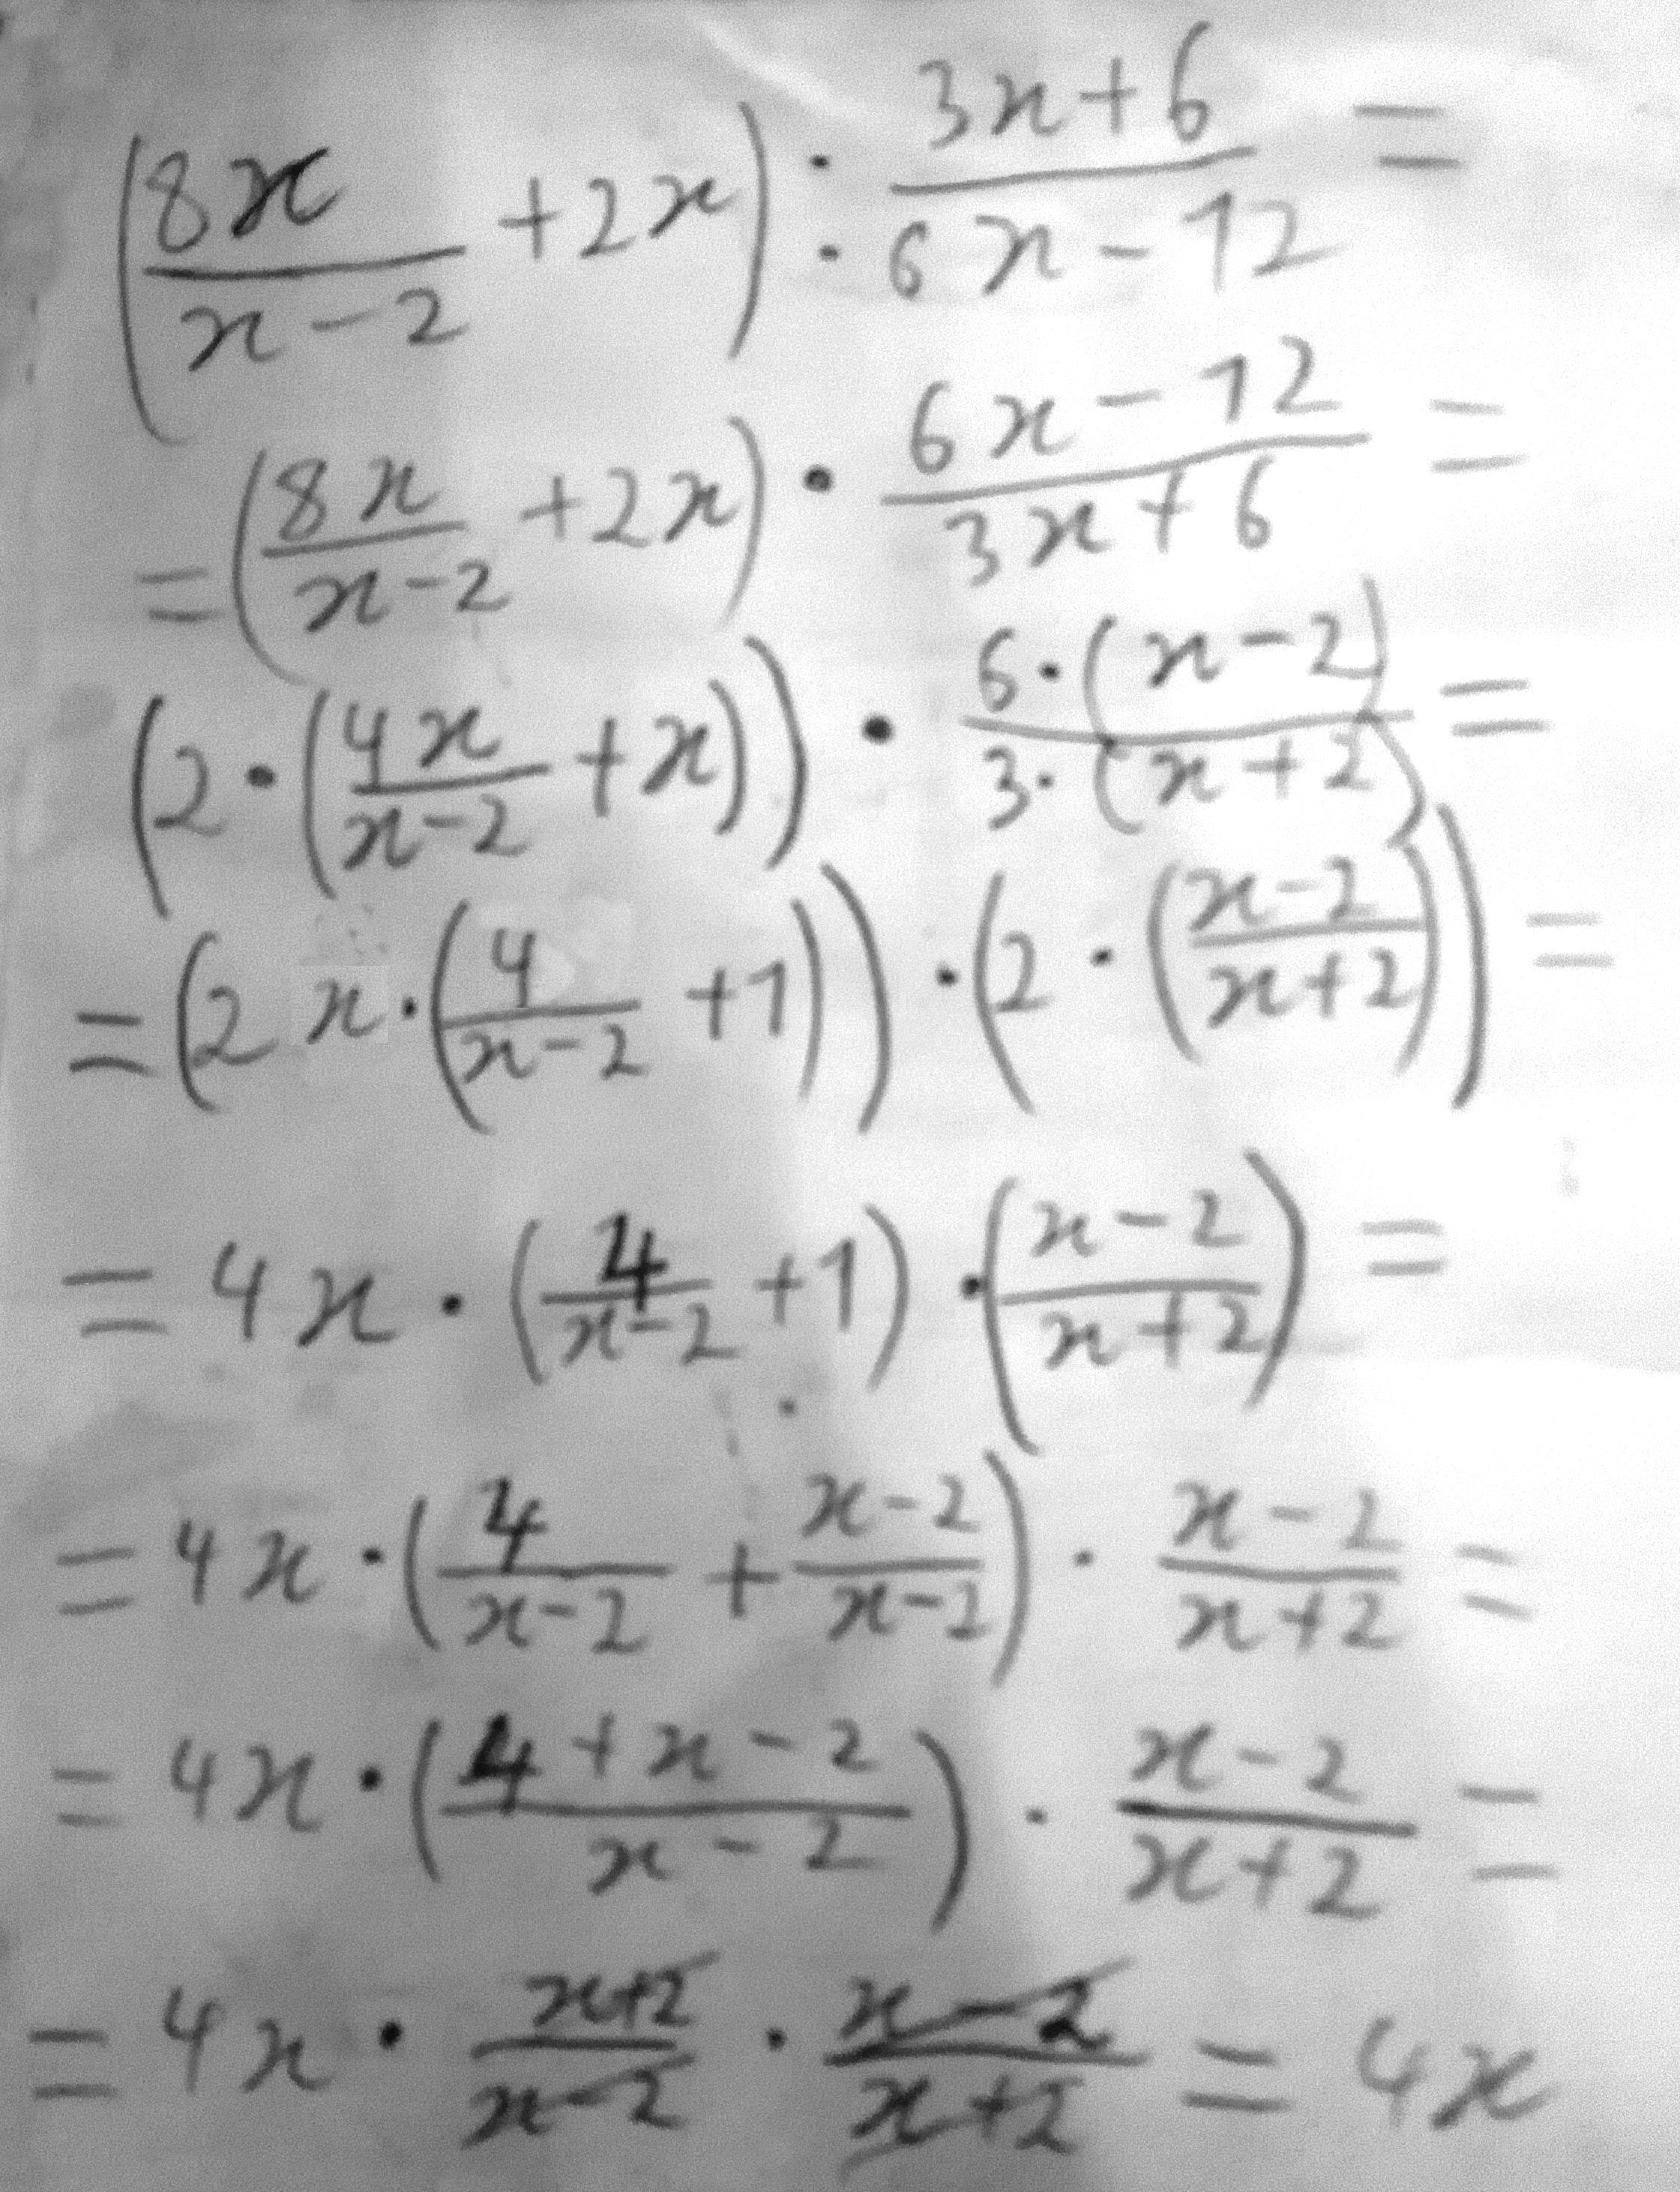 (8x/(x-2) + 2x) : (3x+6)/(6x-12) =
= (8x/(x-2) + 2x) · (6x-12)/(3x+6) =
(2·(4x/(x-2) + x)) · (6·(x-2))/(3·(x+2)) =
= (2x·(4/(x-2) + 1)) · (2·((x-2)/(x+2))) =
= 4x · (4/(x-2) + 1) · ((x-2)/(x+2)) =
= 4x · (4/(x-2) + (x-2)/(x-2)) · (x-2)/(x+2) =
= 4x · ((4+x-2)/(x-2)) · (x-2)/(x+2) =
= 4x · (x+2)/(x-2) · (x-2)/(x+2) = 4x